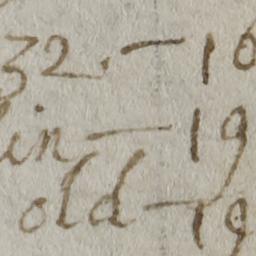 32. — 10
lin — 19
old — 19